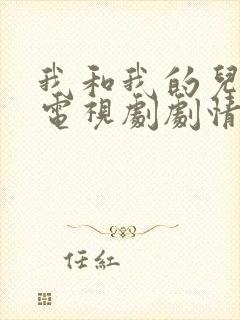 我和我的兒
電視劇劇情
任紅